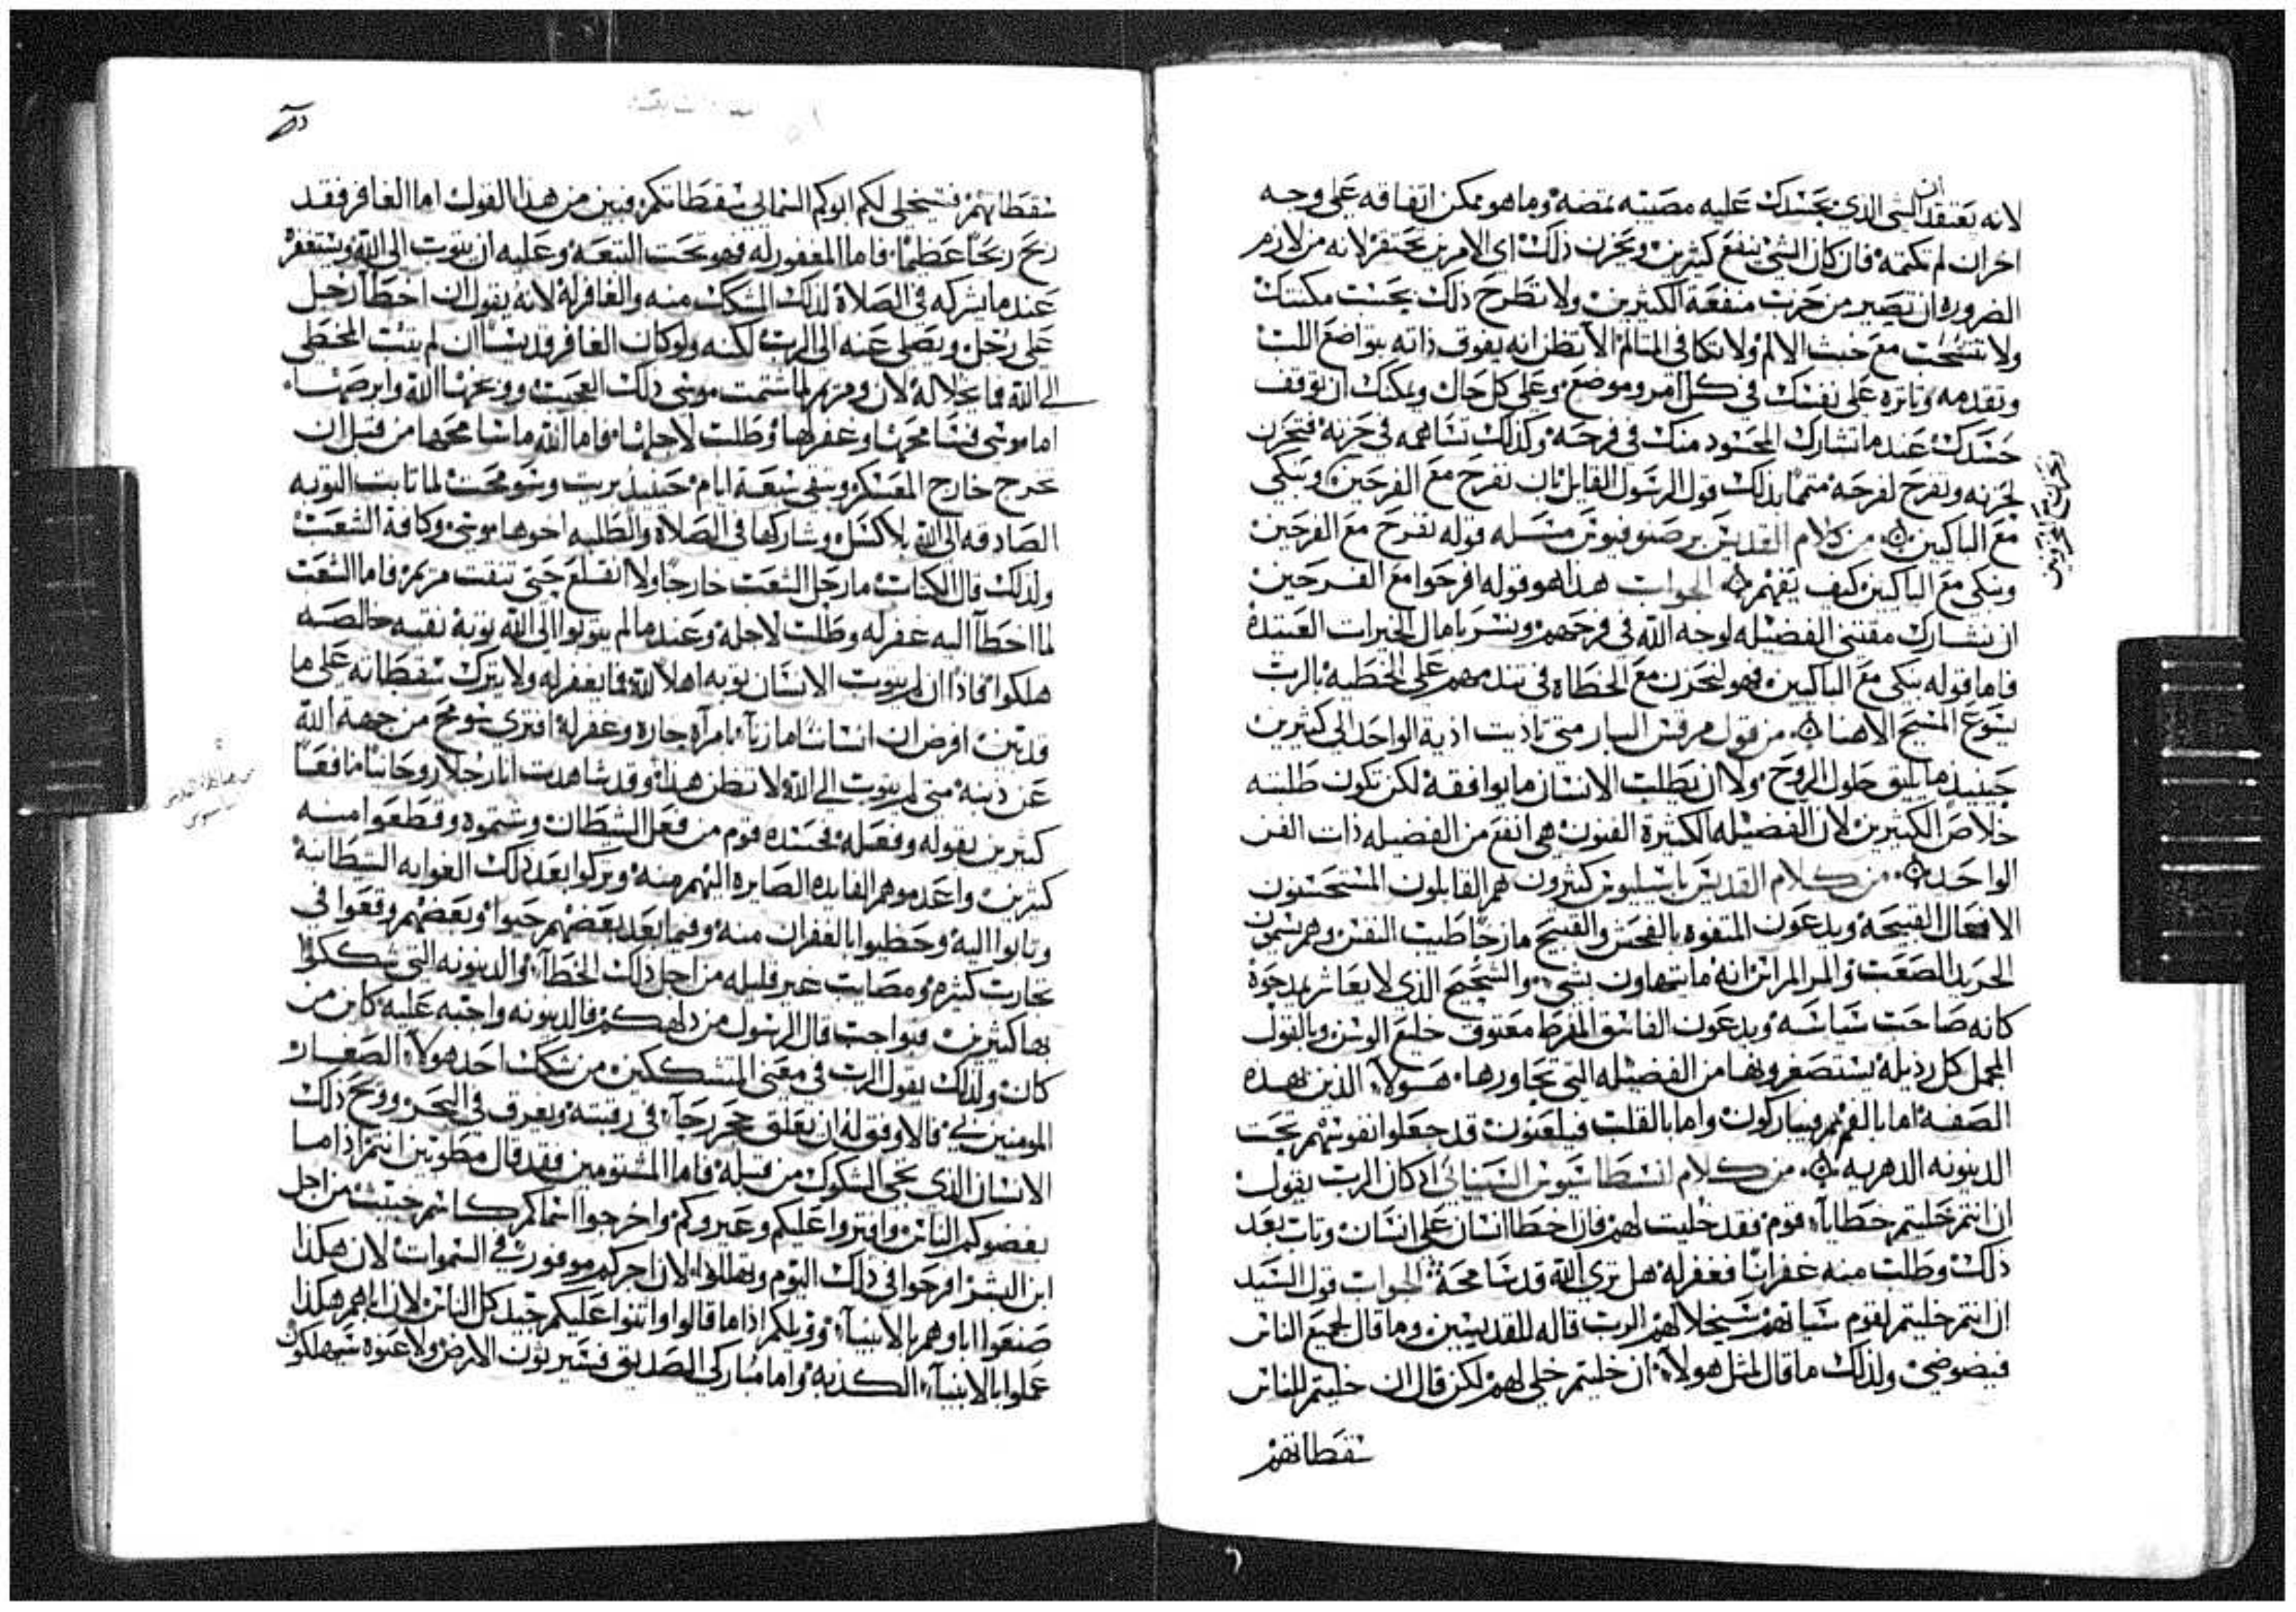 لانه يعتقد ان الشي الذي يحسدك عليه مصيبه تمضه وما هو ممكن اتفاقه على وجه
اخر ان لم تكتمه فان كان الشي ينفع كثيرين ويحزن ذلك اي الامرين تحتقر لانه من لازم
الضروره ان تصير من حزب منفعة الكثيرين ولا تطرح ذلك بحسب مكنتك
ولا تنسحب مع خبث الالم ولا تكافي المتالم الا تظن انه يفوق ذاته بتواضع اللب
وتقدمه وتاثره على نفسك في كل امر وموضع وعلى كل حال ويمكنك ان توقف
حسدك عندما تشارك المحسود منك في فرحه وكذلك تساهمه في حزنه فتحزن
لحزنه وتفرح لفرحه متمما بذلك قول الرسول القايل بان نفرح مع الفرحين ونبكي
مع الباكين من كلام القديس برصنوفيوس مسله قوله نفرح مع الفرحين
ونبكي مع الباكين كيف يفهم الجواب هذا هو قوله افرحوا مع الفرحين
ان نشارك مقتني الفضيله لوجه الله في فرحهم ونسر بامال الخيرات العتيده
فاما قوله نبكي مع الباكين فهو لنحزن مع الخطاه في تندمهم على الخطيه بالرب
يسوع المسيح الاهنا من قول مرقس السار متى تاديت اذية الواحد الى كثيرين
حينيذ ما يليق حلول الروح ولا ان يطلب الانسان ما يوافقه لكن تكون طلبته
خلاص الكثيرين لان الفضيله الكثيرة الفنون هي انفع من الفضيله ذات الفن
الواحد من كلام القديس باسيليوس كثيرون هم القايلون المستحسنون
الافعال القبيحه ويدعون المتفوه بالفحش والقبيح مازحا طيب النفس وهم يسمون
الحريد الصعب والمر المراس انه ما يتهاون بشي والشحيح الذي لا يعاشر يمدحوه
كانه صاحب سياسه ويدعون الفاسق المفرط معتوق خليع الوسن وبالقول
المجمل كل رذيله يستصغرونها من الفضيله التي تجاورها هولاء الذين بهذه
الصفه اما بالفم فيباركون واما بالقلب فيلعنون قد جعلوا نفوسهم تحت
الدينونه الدهريه من كلام انسطاسيوس السيناي اذ كان الرب يقول
ان انتم خليتم خطايآ قوم فقد خليت لهم فان اخطا انسان على انسان وتاب بعد
ذلك وطلب منه غفرانا فغفر له هل ترى الله قد سامحه الجواب قول السيد
ان انتم خليتم لقوم سياتهم سيخلا لهم الرب قاله للقديسين وما قال لجميع الناس
ولذلك ما قال لمثل هولاء ان خليتم خلي لهم لكن قال ان خليتم للناس
سقطاتهم
وتحزن مع المحزونين
سقطاتهم فسيخلي لكم ابوكم السماي سقطاتكم فبين من هذا القول اما الغافر فقد
ربح ربحا عظيما فاما المغفور له فهو تحت التبعه وعليه ان يتوب الى الله ويستغفر
عندما يشركه في الصلاة لذلك المشكك منه والغافر له لانه يقول ان اخطا رجل
على رجل ويصلي عنه الى الرب لكنه ولو كان الغافر قديسا ان لم يتب المخطي
الى الله فما يخلا له لان مريم لما شتمت موسى ذلك العجيب ووبخها الله وابرصها
اما موسى فسامحها وغفر لها وطلب لاجلها فاما الله ما سامحها من قبل ان
تخرج خارج المعسكر وتبقى سبعة ايام حينيذ بريت وسومحت لما تابت التوبه
الصادقه الى الله بلا كسل وشاركها في الصلاه والطلبه اخوها موسى وكافة الشعب
ولذلك قال الكتاب ما رحل الشعب خارجا ولا انقلع حتى تنقت مريم فاما الشعب
لما اخطا اليه غفر له وطلب لاجله وعندما لم يتوبوا الى الله توبة نقيه خالصه
هلكوا فاذا ان لم يتوب الانسان توبه اهلا لله فما يغفر له ولا يترك سقطاته على ما
قد تبين افرض ان انسانا ما زنا بامراة جاره وغفر له افترى سومح من جهة الله
عن ذنبه متى لم يتوب الى الله لا تظن هذا وقد شاهدت انا رجلا روحانيا نافعا
كثيرين بقوله وفعله فحسده قوم من فعل الشيطان وشتموه وقطعوا منه
كثيرين واعدموهم الفايده الصايره اليهم منه وتركوا بعد ذلك الغوايه الشيطانيه
وتابوا اليه وحظيوا بالغفران منه وفيما بعد بعضهم وبعضهم وقعوا في
تجارب كثيره ومصايب غير قليله من اجل ذلك الخطآ والدينونه التي شككوا
بها كثيرين فبواجب قال الرسول من دلهكم فالدينونه واجبه عليه كاين من
كان ولذلك يقول الرب في معنى المتشككين من شكك احد هولاء الصغار
المومنين بي فالاوفق له ان يعلق حجر رحآ في رقبته ويغرق في البحر وويح ذلك
الانسان الذي تجي الشكوك من قبله فاما المشتومين فقد قال مطوبين انتم اذا ما
بغضوكم الناس وافتروا عليكم وعيروكم واخرجوا اسماكم كاسم خبيث من اجل
ابن البشر افرحوا في ذلك اليوم وتهللوا لان اجركم موفور في السموات لان هكذا
صنعوا اباوهم بالانبيآ وويلكم اذا ما قالوا واثنوا عليكم جيد كل الناس لان اباهم هكذا
عملوا بالانبيآ الكذبه واما مباركي الصديق فسيرثون الارض ولاعنوه سيهلكون